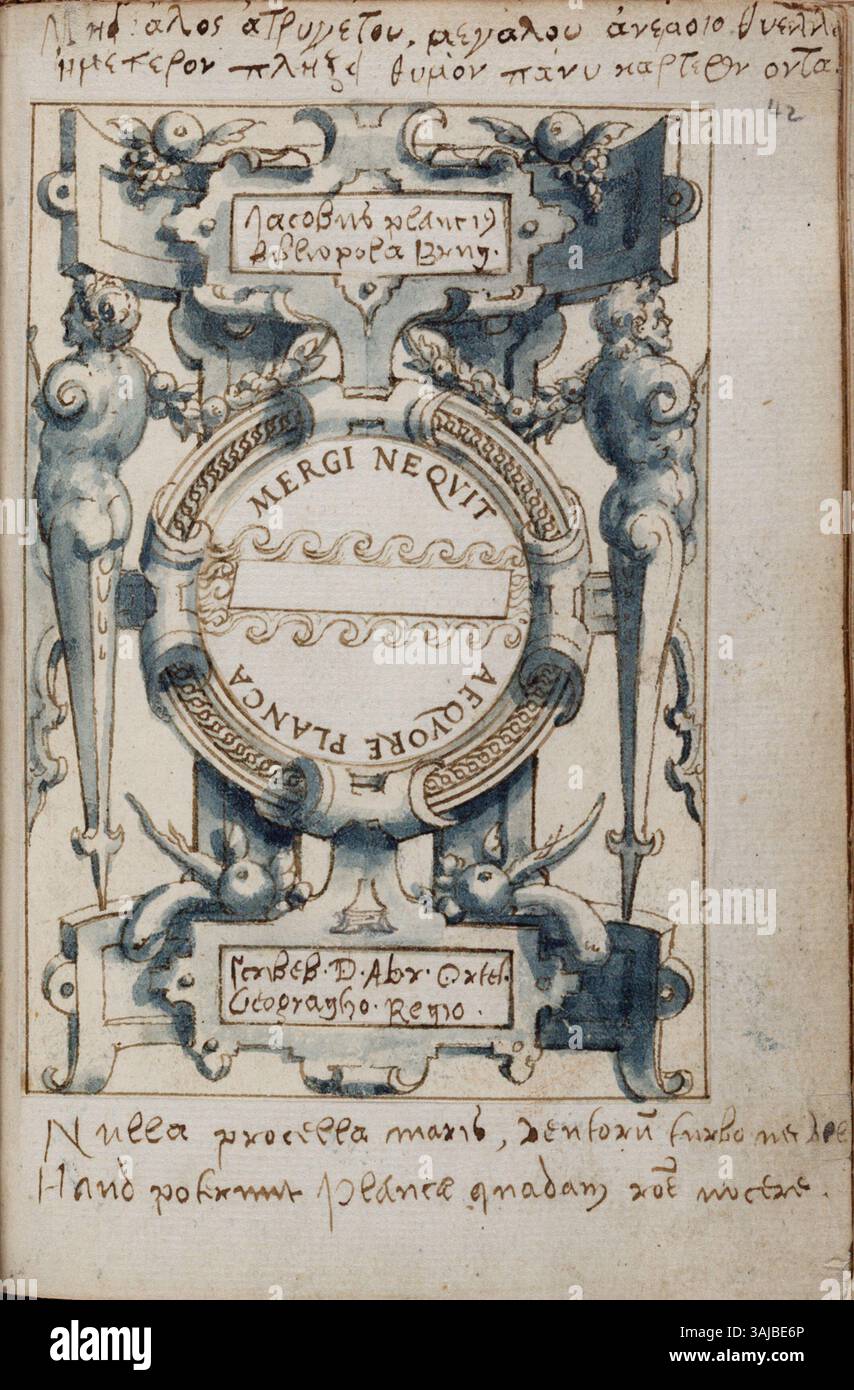 Μηδ' ἁλὸς ἀτρυγέτου, μεγάλου ἀνέμοιο θυέλλη
ἡμέτερον πλῆξε θυμὸν πάνυ καρτερὸν ὄντα.
42
Jacobus plancıꝰ
bibliopola Brug.
MERGI NEQVIT
AEQVORE PLANCA
Scribeb. D. Abr. Ortel.
Geographo. Regio.
Nulla procella maris, ventorū turbo
Haud poterunt Plancæ quadam nocere.
alamy
Image ID: 3AJBE6P
www.alamy.com